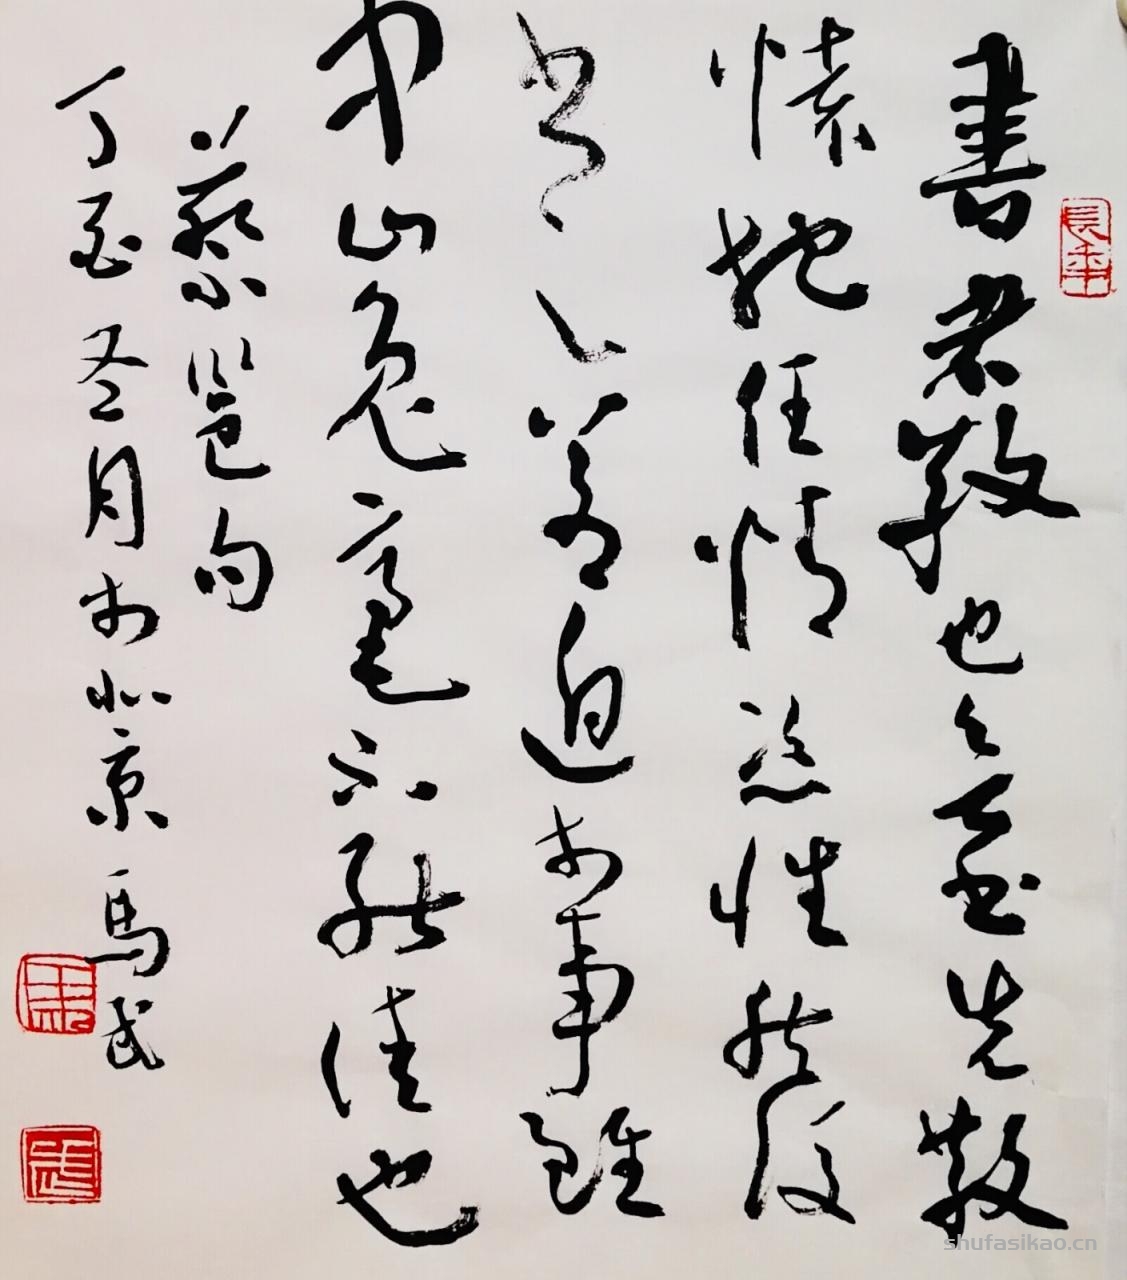 書者散也欲書先散
懷抱任情恣性然後
書之若迫於事雖
中山兔毫不能佳也
蔡邕句
丁酉冬月於北京馬武
shufasikao.cn